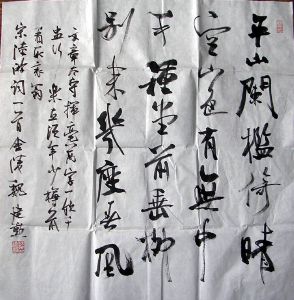 平山闌檻倚晴
空山色有無中
手種堂前垂柳
別來幾度春風
文章太守揮毫萬字一飲千
盅行樂直須年少樽前
看取衰翁
宋陸游词一首金陵魏建